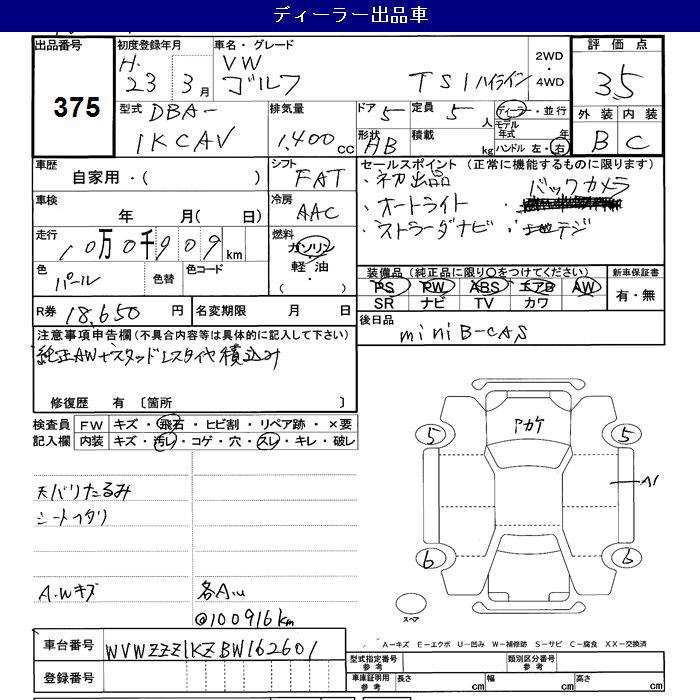 ディーラー出品車
出品番号
375
初度登録年月
H.
23 3月
車名・グレード
VW
ゴルフ TSIハイライン
2WD
・
4WD
評価点
3.5
外装 内装
B C
型式 DBA-
1KCAV
排気量
1,400cc
ドア 5
定員 5人
形状 HB
積載 kg
ディーラー・並行
モデル年式 年
ハンドル 左・右
車歴
自家用・( )
シフト
FAT
車検
年 月( 日)
冷房
AAC
走行
10万0千909km
燃料
ガソリン
・
軽油
・
色
パール
色替
色コード
セールスポイント (正常に機能するものに限ります)
・ネカ出品 バックカメラ
・オートライト
・ストラーダナビ
装備品(純正品に限り○をつけてください)
PS PW ABS エアB AW
SR ナビ TV カワ
新車保証書
有・無
R券 18,650円
名変期限 月 日
後日品
miniB-CAS
注意事項申告欄(不具合内容等は具体的に記入して下さい)
純正AW+スタッドレスタイヤ積込み
修復歴 有 〔箇所 〕
検査員記入欄
FW キズ・飛石・ヒビ割・リペア跡・×要
内装 キズ・汚レ・コゲ・穴・スレ・キレ・破レ
天バリたるみ
シートヘタリ
A.Wキズ
各AU
@100916km
アカケ
5 5
A1
6 6
スペア
A-キズ E-エクボ U-凹み W-補修跡 S-サビ C-腐食 XX-交換済
車台番号 WVWZZZ1KZBW162601
登録番号
型式指定番号
参考
類別区分番号
参考
車庫証明用
参考
長さ cm 幅 cm 高さ cm